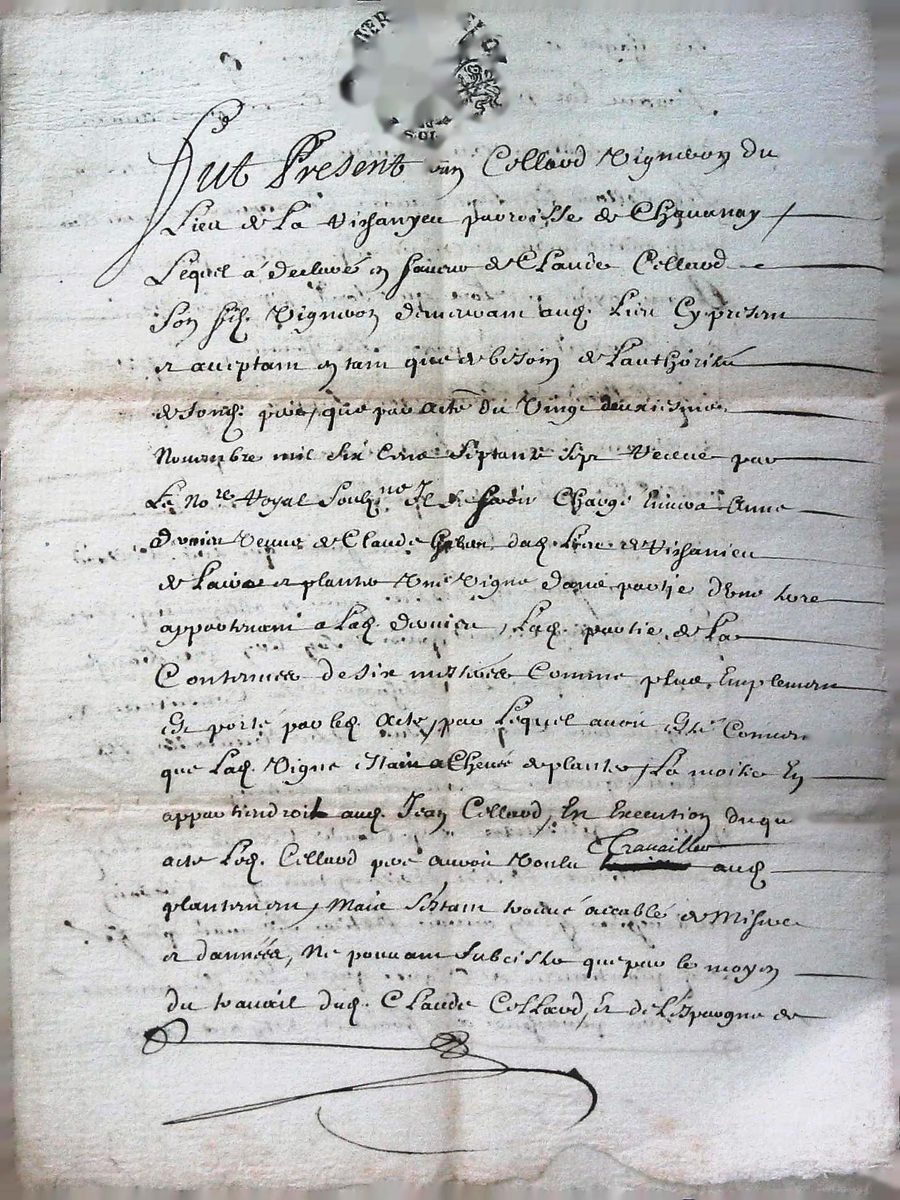 SOL
Fut Present Jean Cellard Vigneron du
Lieu de La Vissanyeu parroisse de Chauanay
Lequel a declaré en faueur de Claude Cellard
Son fils Vigneron demeurant aud. Lieu Cy present
et acceptant en tant que de besoin de Lauthorité
de sond. pere, que par acte du Vingt deuxiesme
Nouembre mil six Cens septante sept receue par
Le No.re Royal soubz.né Il se seroit Chargé Enuers Anne
dernier Veuue de Claude dud. Lieu de Vissanieu
de faire et planter Une Vigne dans partie d'Une terre
appartenant a Lad. dernier, Lad. partie de La
Contenue de six mesteres Comme plus Emplement
Est porté par led. Acte, par Lequel auoit Esté Conuenu
que Lad. Vigne Estant acheuée de planter, La moitié En
appartiendroit aud. Jean Cellard, En Execution duqu
acte Led. Cellard pere auroit Voulu trauailler aud.
plantement, Mais sestant trouué accablé de Misere
et dannées, Ne pouuant subcister que par le moyen
du trauail dud. Claude Cellard, Et de l'Espargne de